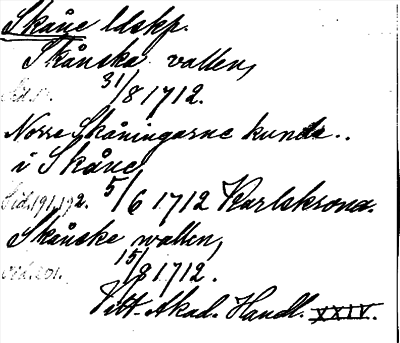 Skåne ldskp.
Skånska vallen,
31/8 1712.
Norra Skåningarne kunde..
i Skåne,
Sid. 191, 192. 5/6 1712 Karlskrona.
Skånske wallen,
sid. 201. 15/8 1712.
Vitt. Akad. Handl. XXIV.